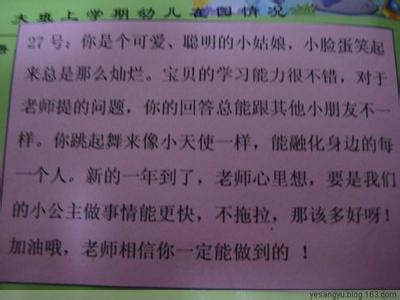 大班上学期幼儿在园情况
27号：你是个可爱、聪明的小姑娘，小脸蛋笑起
来总是那么灿烂。宝贝的学习能力很不错，对于
老师提的问题，你的回答总能跟其他小朋友不一
样。你跳起舞来像小天使一样，能融化身边的每
一个人。新的一年到了，老师心里想，要是我们
的小公主做事情能更快，不拖拉，那该多好呀！
加油哦，老师相信你一定能做到的 ！
yesangyu.blog.163.com